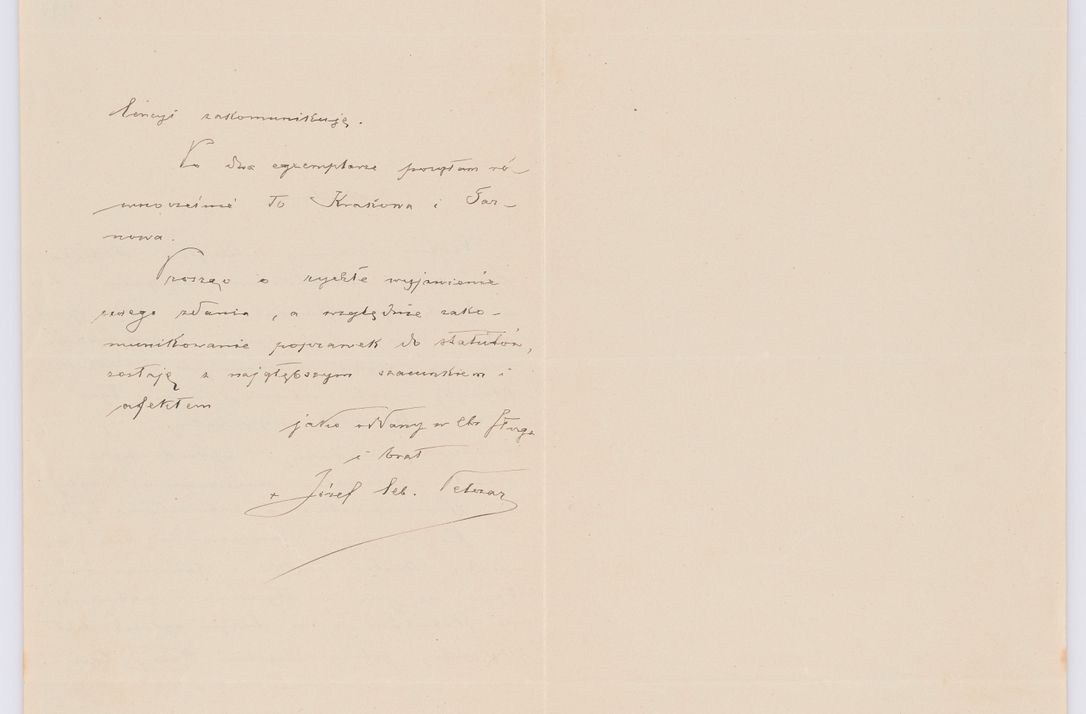 lencyi zakomunikuję.
Po dwa egzemplarze posyłam ró-
wnocześnie do Krakowa i Tar-
nowa.
Proszę o rychłe wyjawienie
swego zdania, a względnie zako-
munikowanie poprawek do statutów,
zostaję z najgłębszym szacunkiem i
afektem
jako oddany w Chr sługa
i brat
+ Józef Seb. Pelczar